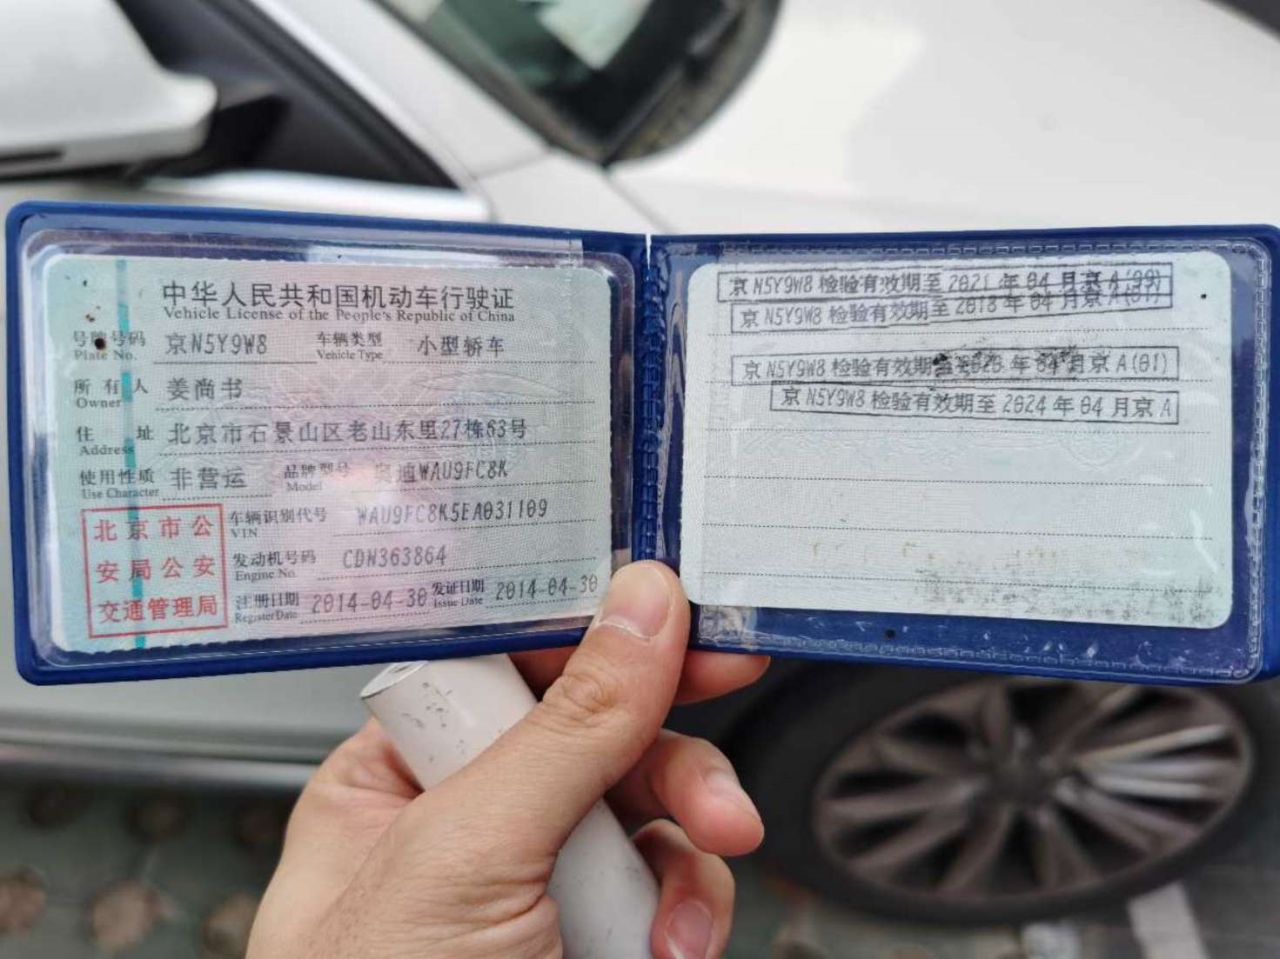 中华人民共和国机动车行驶证
Vehicle License of the People's Republic of China
号牌号码 京N5Y9W8 车辆类型 小型轿车
Plate No. Vehicle Type
所有人 姜尚书
Owner
住址 北京市石景山区老山东里27栋63号
Address
使用性质 非营运 品牌型号 奥迪WAU9FC8K
Use Character Model
北京市公
安局公安
交通管理局
车辆识别代号 WAU9FC8K5EA031109
VIN
发动机号码 CDN363864
Engine No.
注册日期 2014-04-30 发证日期 2014-04-30
Register Date Issue Date
京N5Y9W8 检验有效期至 2021 年 04 月京 A(99)
京 N5Y9W8 检验有效期至 2018 年 04 月京A(01)
京 N5Y9W8 检验有效期至 年 04 月京 A(01)
京 N5Y9W8 检验有效期至 2024 年 04 月京 A